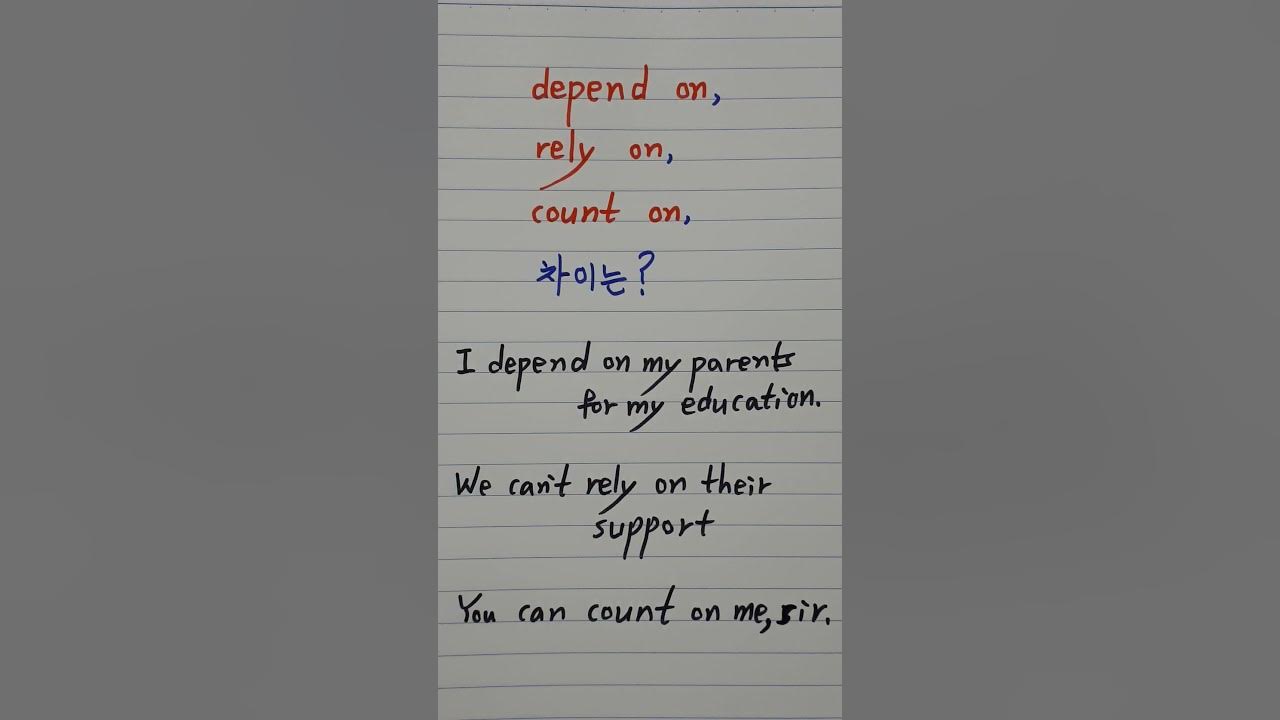 depend on,
rely on,
count on,
차이는?
I depend on my parents
for my education.
We can't rely on their
support
You can count on me, sir.